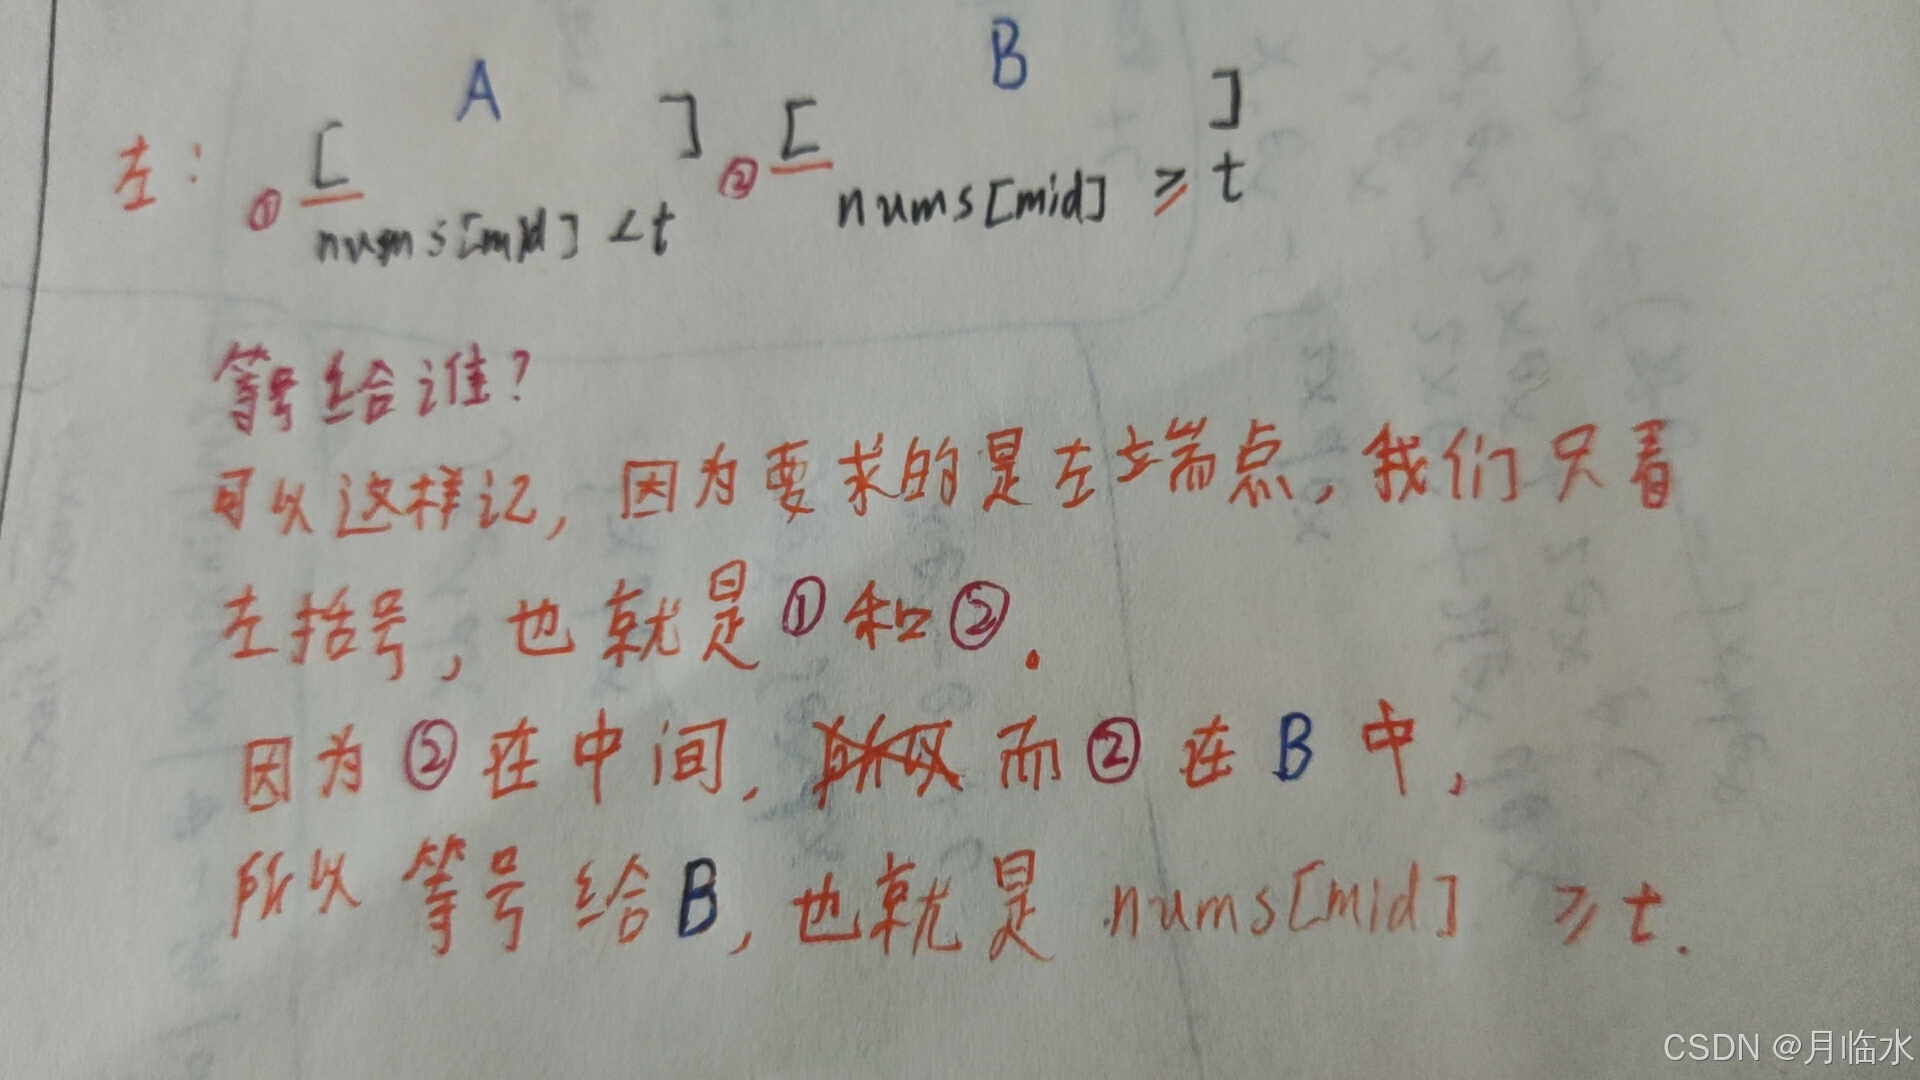 A B
左： ① [ ] ② [ ]
nums[mid] <t nums[mid] ≥ t
等号给谁？
可以这样记，因为要求的是左端点，我们只看
左括号，也就是①和②．
因为②在中间，而②在B中，
所以等号给B，也就是 nums[mid] ≥ t．
CSDN @月临水